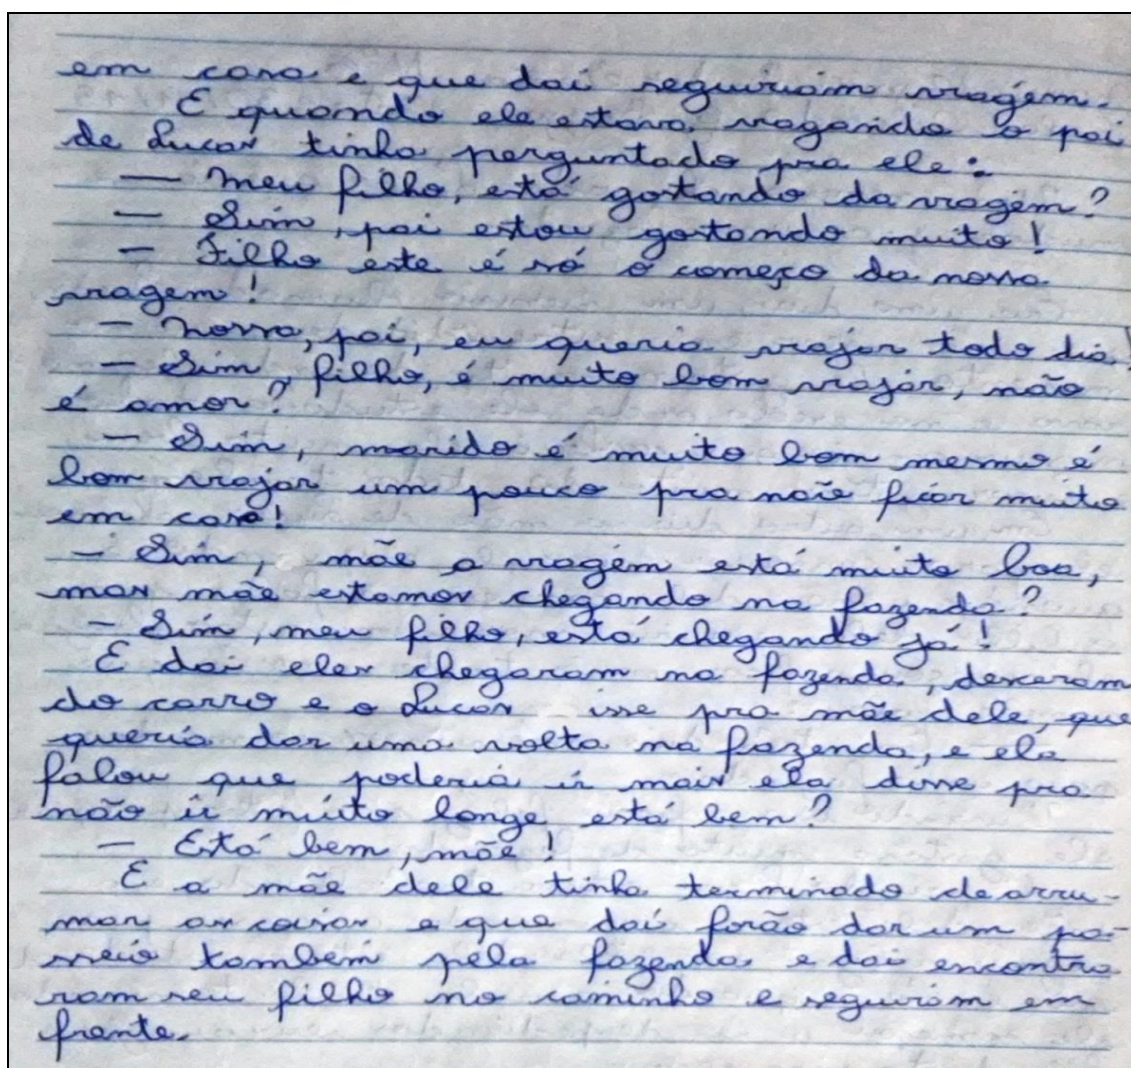 em casa e que daí seguiriam viagem.
E quando ele estava viagando o pai
de Lucas tinha perguntado pra ele:
— Meu filho, está gostando da viagém?
— Sim, pai estou gostando muito!
— Filho este é só o começo da nossa
viagem!
— Nossa, pai, eu queria viajar todo dia!
— Sim, filho, é muito bom viajar, não
é amor?
— Sim, marido é muito bom mesmo é
bom viajar um pouco pra não ficar muito
em casa!
— Sim, mãe a viagém está muito boa,
mas mãe estamos chegando na fazenda?
— Sim, meu filho, está chegando já!
E daí eles chegaram na fazenda, desceram
do carro e o Lucas isse pra mãe dele, que
queria dar uma volta na fazenda, e ela
falou que poderia ir mais ela disse pra
não ir muito longe está bem?
— Está bem, mãe!
E a mãe dele tinha terminado de arru-
mar as coisas e que daí forão dar um pa-
sseio também pela fazenda e daí encontra
ram seu filho no caminho e seguiram em
frente.